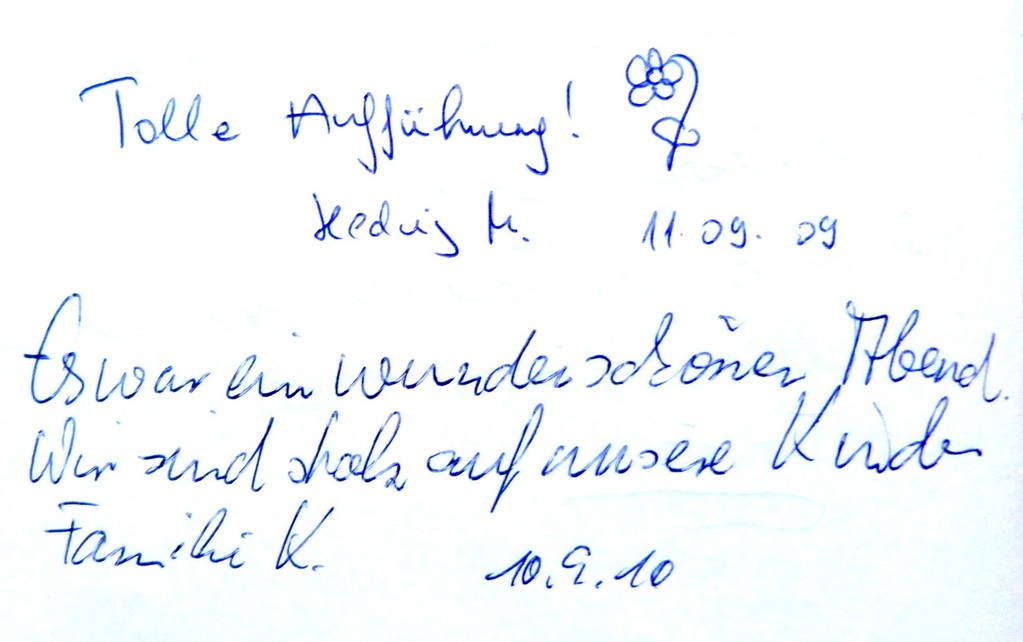 Tolle Aufführung!
Hedwig M. 11.09.09
Es war ein wunderschöner Abend.
Wir sind stolz auf unsere Kinder
Familie K. 10.9.10